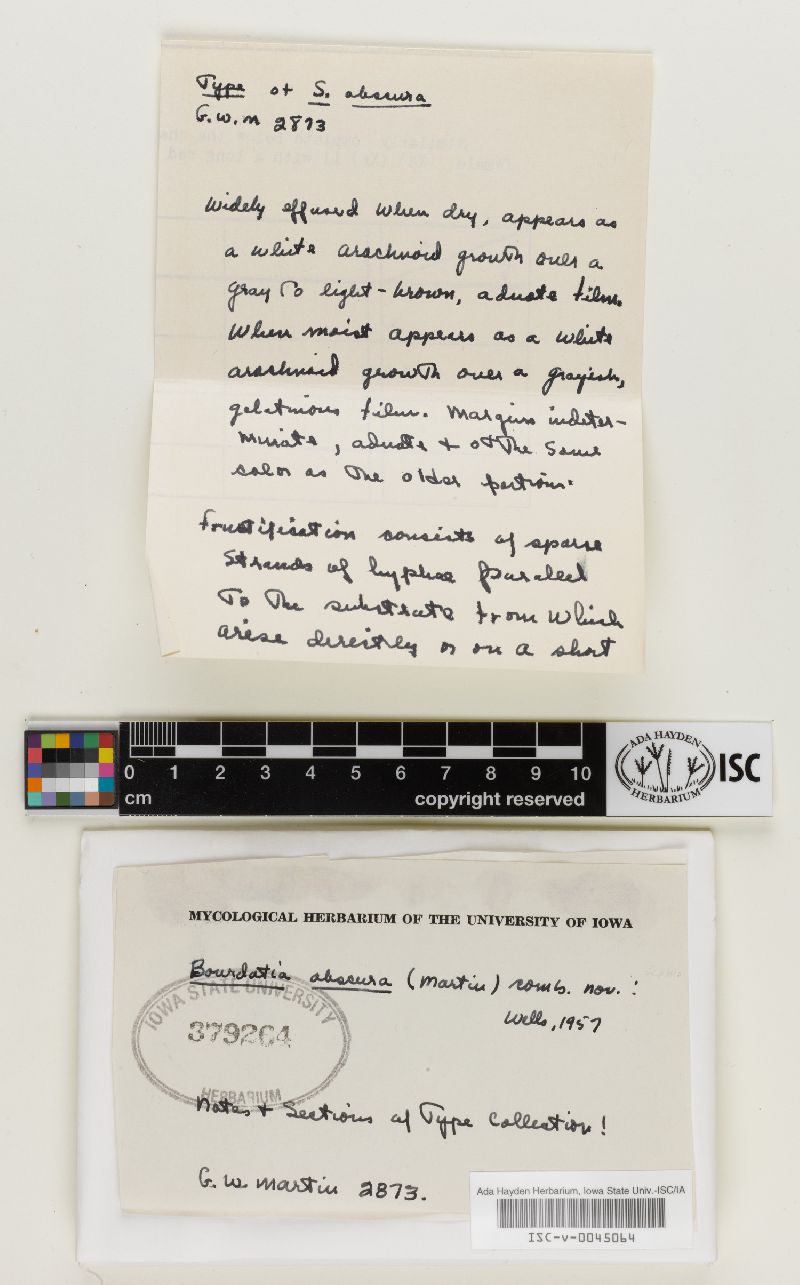 Type of S. obscura
G.W.M 2873
Widely effused when dry, appears as
a white arachnoid growth over a
gray to light-brown, adnate film.
When moist appears as a white
arachnoid growth over a grayish,
gelatinous film. Margins indeter-
minate, adnate + of the same
color as the older portions.
Fructification consists of sparse
strands of hyphae parallel
to the substrate from which
arise directly or on a short
0 1 2 3 4 5 6 7 8 9 10
cm
copyright reserved
ADA HAYDEN
HERBARIUM
ISC
MYCOLOGICAL HERBARIUM OF THE UNIVERSITY OF IOWA
Bourdotia obscura (Martin) comb. nov.:
Wells, 1957
IOWA STATE UNIVERSITY
379264
HERBARIUM
Notes + Sections of Type Collection!
G. W. Martin 2873.
Ada Hayden Herbarium, Iowa State Univ.-ISC/IA
ISC-v-0045064